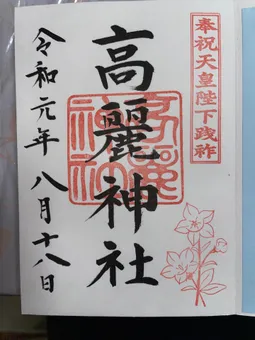 奉祝天皇陛下践祚
高麗神社
令和元年八月十八日